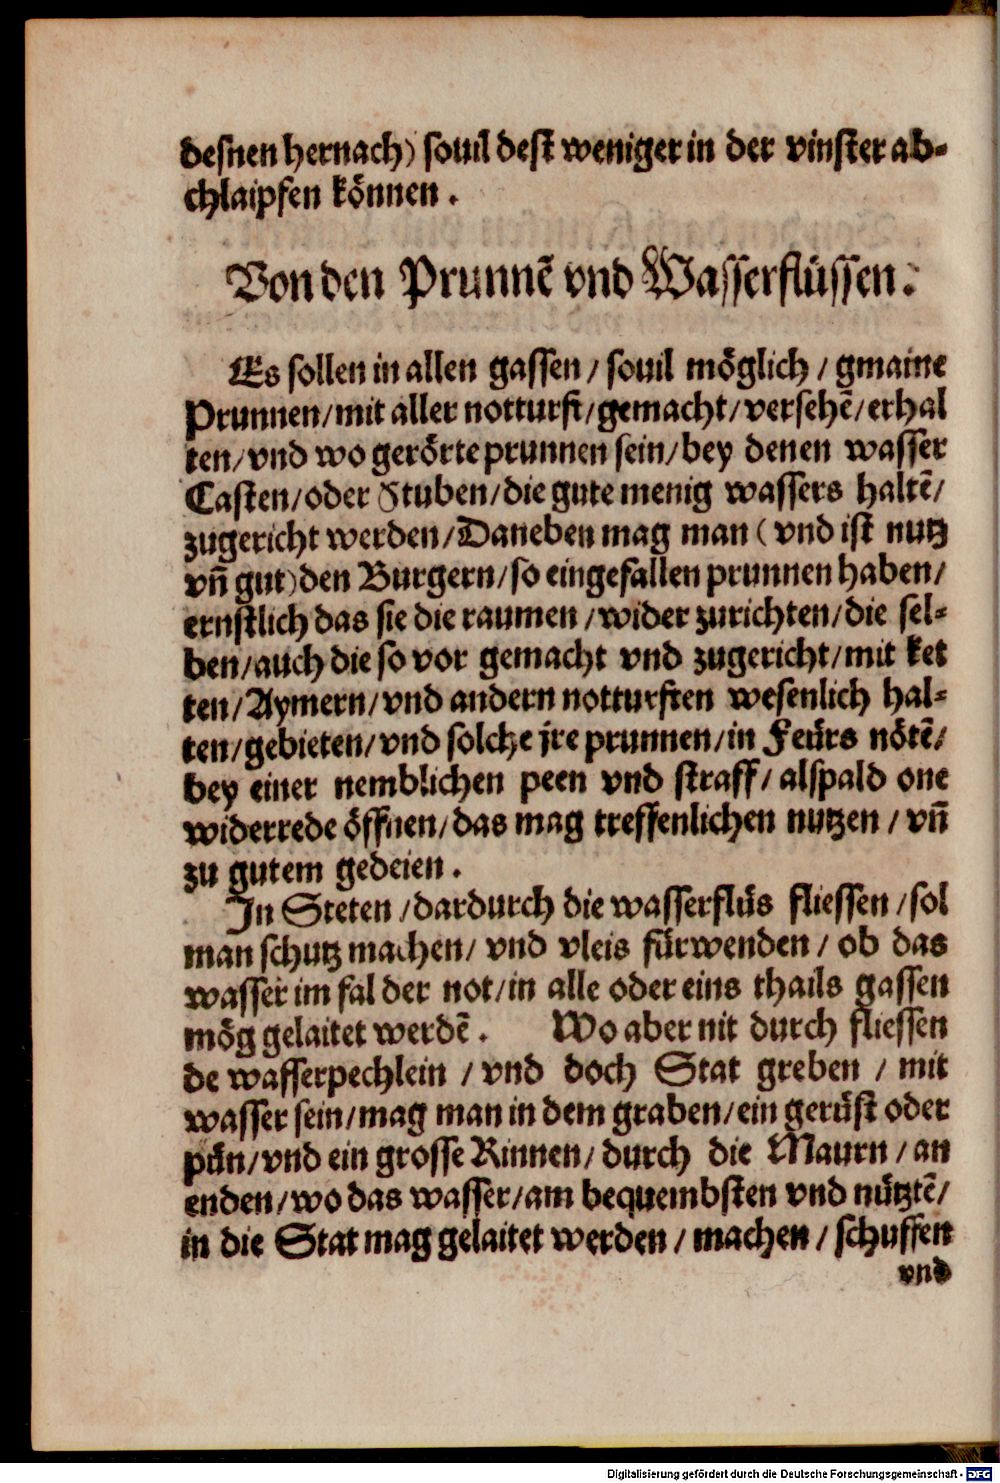 desnen hernach) souil dest weniger in der vinster ab-
chlaipfen können.
Von den Prunnē vnd Wasserflüssen.
Es sollen in allen gassen / souil möglich / gmaine
Prunnen / mit aller notturft / gemacht / versehē / erhal
ten / vnd wo gerörte prunnen sein / bey denen wasser
Casten / oder Stuben / die gute menig wassers haltē /
zugericht werden / Daneben mag man (vnd ist nutz
vn̄ gut) den Burgern / so eingefallen prunnen haben /
ernstlich das sie die raumen / wider zurichten / die sel-
ben / auch die so vor gemacht vnd zugericht / mit ket
ten / Aymern / vnd andern notturften wesenlich hal-
ten / gebieten / vnd solche jre prunnen / in Feürs nötē /
bey einer nemblichen peen vnd straff / alspald one
widerrede öffnen / das mag treffenlichen nutzen / vn̄
zu gutem gedeien.
In Steten / dardurch die wasserflüs fliessen / sol
man schutz machen / vnd vleis fürwenden / ob das
wasser im fal der not / in alle oder eins thails gassen
mög gelaitet werdē. Wo aber nit durch fliessen
de wasserpechlein / vnd doch Stat greben / mit
wasser sein / mag man in dem graben / ein gerüst oder
pün / vnd ein grosse Rinnen / durch die Maurn / an
enden / wo das wasser / am bequembsten vnd nütztē /
in die Stat mag gelaitet werden / machen / schuffen
vnd
Digitalisierung gefördert durch die Deutsche Forschungsgemeinschaft - DFG